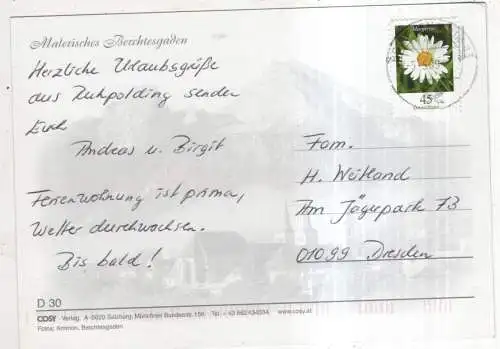 Malerisches Berchtesgaden
Herzliche Urlaubsgrüße
aus Ruhpolding senden
Euch
Andreas u. Birgit
Ferienwohnung ist prima,
Wetter durchwachsen.
Bis bald!
45
Fam.
H. Weitland
Am Jägerpark 73
01099 Dresden
D 30
COSY Verlag, A-5020 Salzburg, Münchner Bundesstr. 156 Tel.
www.cosy.at
Fotos: Ammon, Berchtesgaden